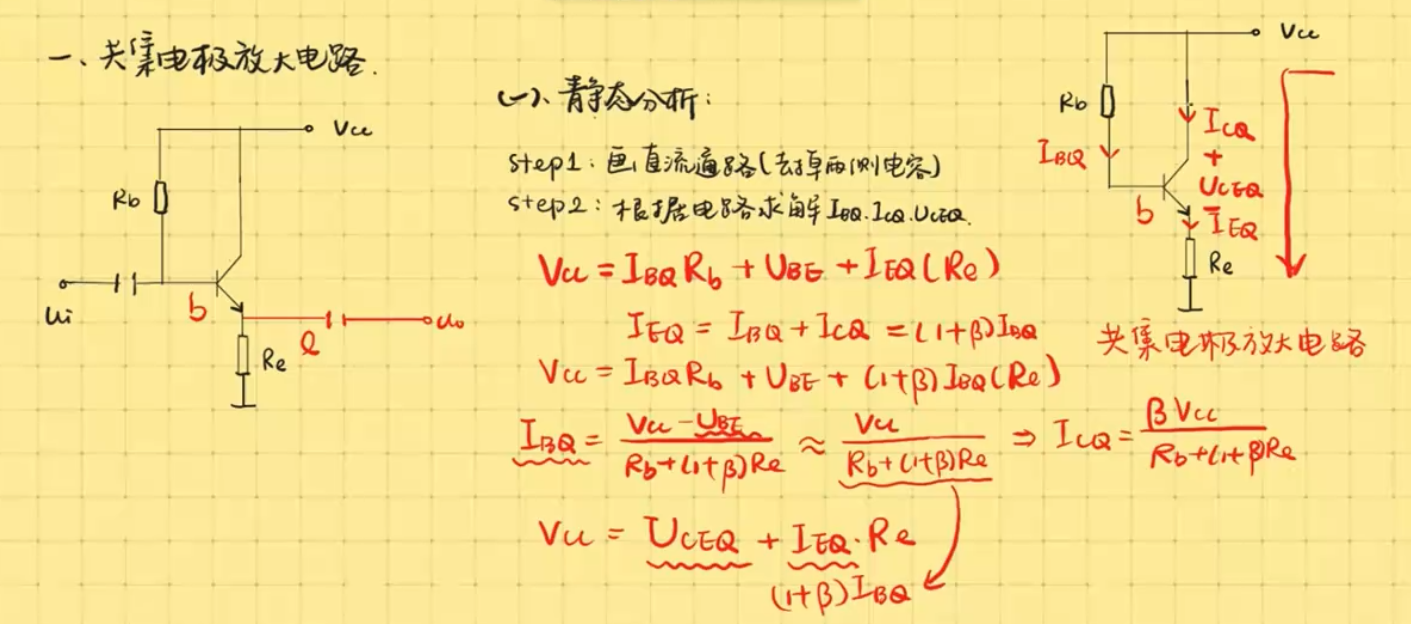 一、共集电极放大电路.
Vcc
Rb
b
Ui
e
Uo
Re
(一)、静态分析:
Step1: 画直流通路(去掉两侧电容)
Step2: 根据电路求解 IBQ.ICQ.UCEQ.
Vcc = IBQ Rb + UBE + IEQ(Re)
IEQ = IBQ + ICQ = (1+β)IBQ
Vcc = IBQRb + UBE + (1+β)IBQ(Re)
IBQ = (Vcc-UBE)/(Rb+(1+β)Re) ≈ Vcc/(Rb+(1+β)Re) ⇒ ICQ = βVcc/(Rb+(1+β)Re)
Vcc = UCEQ + IEQ·Re
(1+β)IBQ
Vcc
Rb
ICQ
IBQ
+
UCEQ
-
b
IEQ
Re
共集电极放大电路